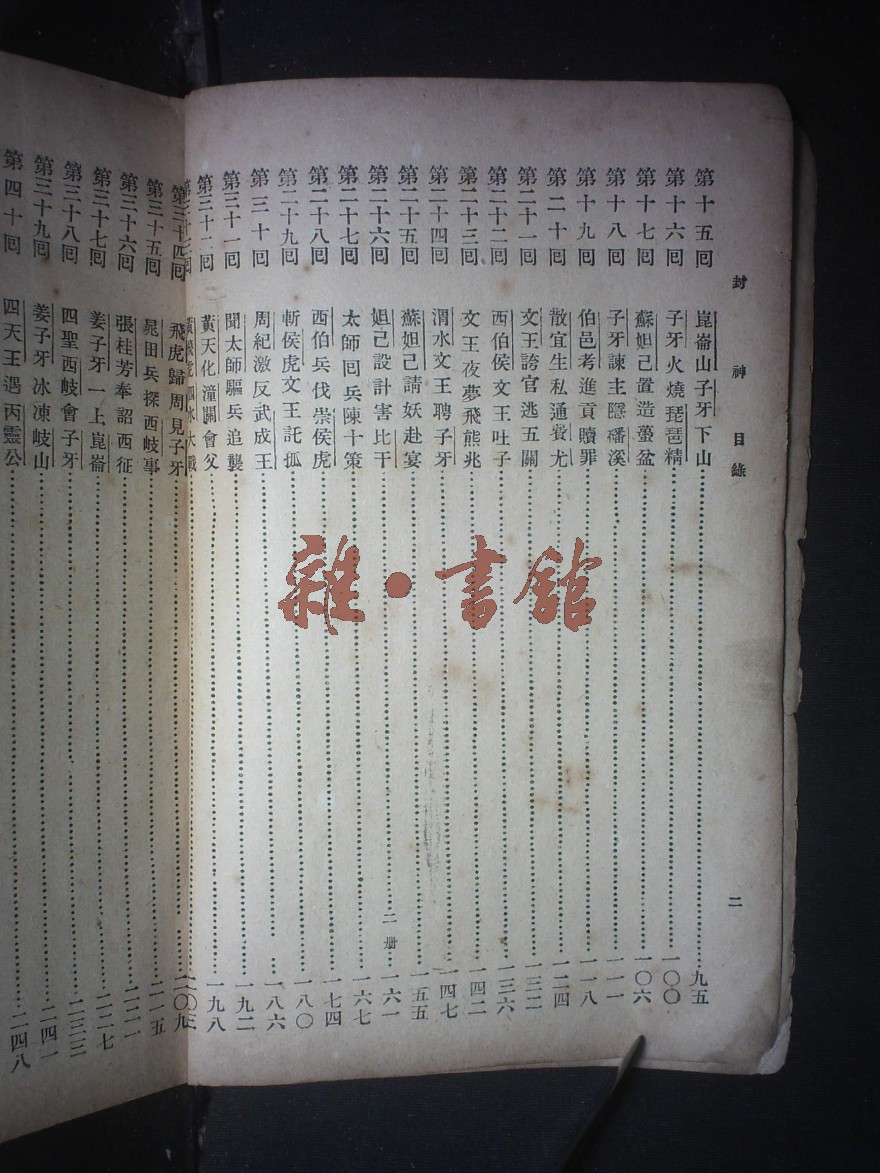 封神目錄 二
第十五回 崑崙山子牙下山 九五
第十六回 子牙火燒琵琶精 一〇〇
第十七回 蘇妲己置造蠆盆 一〇六
第十八回 子牙諫主隱磻溪 一一一
第十九回 伯邑考進貢贖罪 一一八
第二十回 散宜生私通費尤 一二四
第二十一回 文王誇官逃五關 一三二
第二十二回 西伯侯文王吐子 一三六
第二十三回 文王夜夢飛熊兆 一四二
第二十四回 渭水文王聘子牙 一四七
第二十五回 蘇妲己請妖赴宴 一五五
第二十六回 妲己設計害比干 二册 一六一
第二十七回 太師回兵陳十策 一六七
第二十八回 西伯兵伐崇侯虎 一七四
第二十九回 斬侯虎文王託孤 一八〇
第三十回 周紀激反武成王 一八六
第三十一回 聞太師驅兵追襲 一九二
第三十二回 黃天化潼關會父 一九八
第三十三回 黃飛虎泗水大戰 二〇三
第三十四回 飛虎歸周見子牙 二〇九
第三十五回 晁田兵探西岐事 二一五
第三十六回 張桂芳奉詔西征 二二一
第三十七回 姜子牙一上崑崙 二二七
第三十八回 四聖西岐會子牙 二三三
第三十九回 姜子牙冰凍岐山 二四一
第四十回 四天王遇丙靈公 二四八
雜·書館